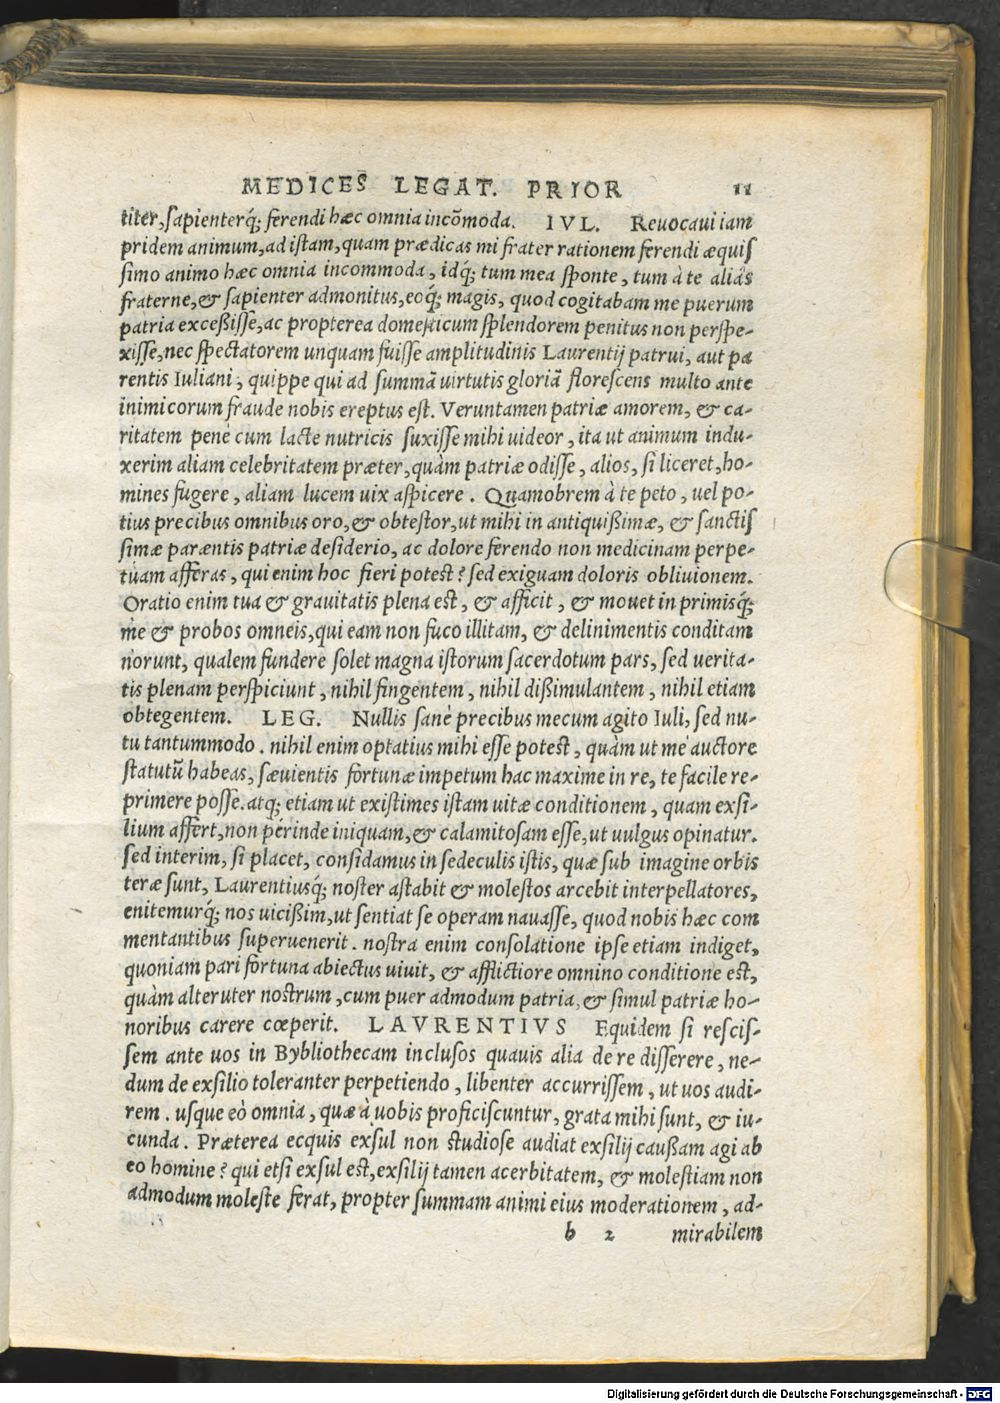 MEDICES LEGAT. PRIOR 11
titer, sapienterq́; ferendi hæc omnia incõmoda. IVL. Reuocaui iam
pridem animum, ad istam, quam prædicas mi frater rationem ferendi æquis
simo animo hæc omnia incommoda, idq́; tum mea sponte, tum à te aliàs
fraterne, & sapienter admonitus, eoq́; magis, quod cogitabam me puerum
patria exceßisse, ac propterea domesticum splendorem penitus non perspe-
xisse, nec spectatorem unquam fuisse amplitudinis Laurentij patrui, aut pa
rentis Iuliani, quippe qui ad summã uirtutis gloriã florescens multo ante
inimicorum fraude nobis ereptus est. Veruntamen patriæ amorem, & ca-
ritatem penè cum lacte nutricis suxisse mihi uideor, ita ut animum indu-
xerim aliam celebritatem præter, quàm patriæ odisse, alios, si liceret, ho-
mines fugere, aliam lucem uix aspicere. Quamobrem à te peto, uel po-
tius precibus omnibus oro, & obtestor, ut mihi in antiquißimæ, & sanctis
simæ parentis patriæ desiderio, ac dolore ferendo non medicinam perpe-
tuam afferas, qui enim hoc fieri potest? sed exiguam doloris obliuionem.
Oratio enim tua & grauitatis plena est, & afficit, & mouet in primisq́;
me & probos omneis, qui eam non fuco illitam, & delinimentis conditam
norunt, qualem fundere solet magna istorum sacerdotum pars, sed uerita-
tis plenam perspiciunt, nihil fingentem, nihil dißimulantem, nihil etiam
obtegentem. LEG. Nullis sanè precibus mecum agito Iuli, sed nu-
tu tantummodo. nihil enim optatius mihi esse potest, quàm ut me auctore
statutũ habeas, sæuientis fortunæ impetum hac maxime in re, te facile re-
primere posse. atq; etiam ut existimes istam uitæ conditionem, quam exsi-
lium affert, non perinde iniquam, & calamitosam esse, ut uulgus opinatur.
sed interim, si placet, considamus in sedeculis istis, quæ sub imagine orbis
teræ sunt, Laurentiusq́; noster astabit & molestos arcebit interpellatores,
enitemurq́; nos uicißim, ut sentiat se operam nauasse, quod nobis hæc com
mentantibus superuenerit. nostra enim consolatione ipse etiam indiget,
quoniam pari fortuna abiectus uiuit, & afflictiore omnino conditione est,
quàm alteruter nostrum, cum puer admodum patria, & simul patriæ ho-
noribus carere cœperit. LAVRENTIVS Equidem si rescis-
sem ante uos in Bybliothecam inclusos quauis alia de re disserere, ne-
dum de exsilio toleranter perpetiendo, libenter accurrissem, ut uos audi-
rem. usque eò omnia, quæ à uobis proficiscuntur, grata mihi sunt, & iu-
cunda. Præterea ecquis exsul non studiose audiat exsilij caußam agi ab
eo homine? qui etsi exsul est, exsilij tamen acerbitatem, & molestiam non
admodum moleste ferat, propter summam animi eius moderationem, ad-
b 2 mirabilem
Digitalisierung gefördert durch die Deutsche Forschungsgemeinschaft - DFG